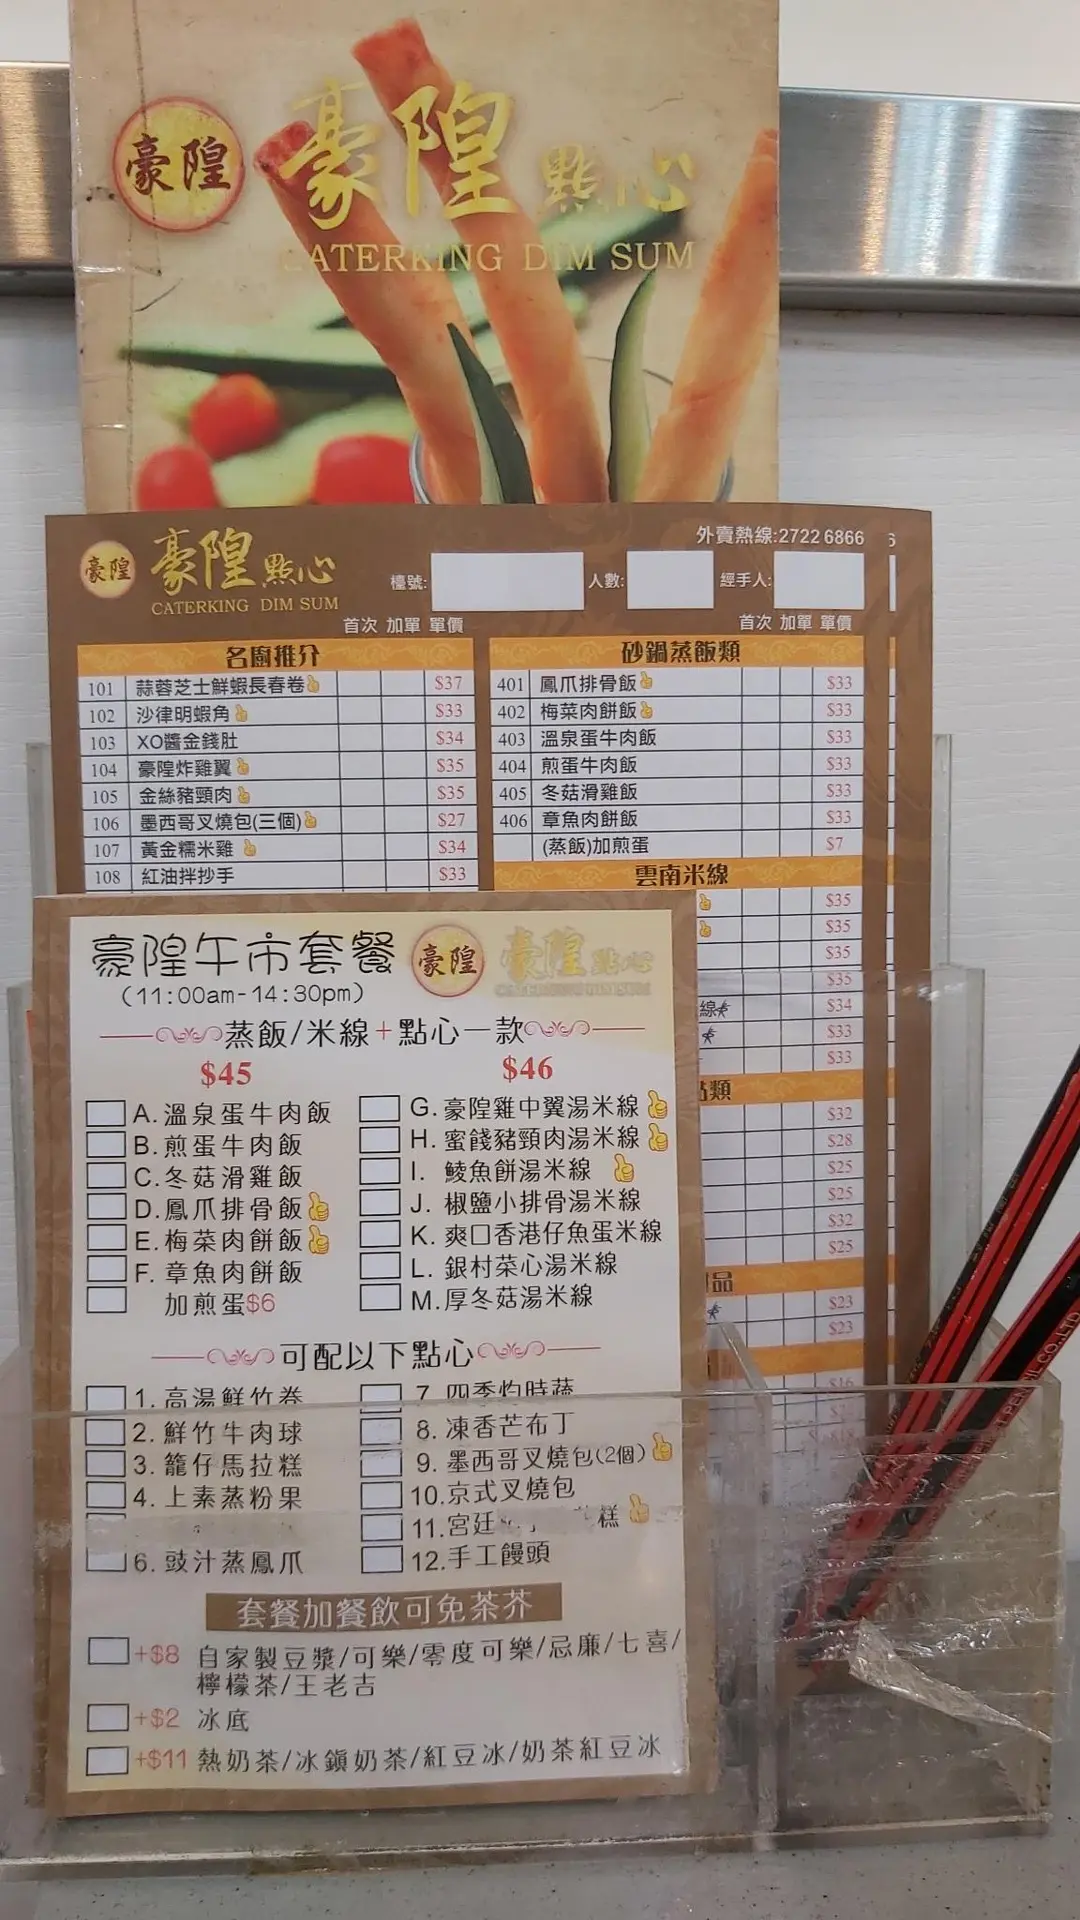 豪隍
豪隍 點心
CATERKING DIM SUM
外賣熱線:2722 6866
豪隍
豪隍 點心
CATERKING DIM SUM
檯號:
人數:
經手人:
首次 加單 單價
名廚推介
101 蒜蓉芝士鮮蝦長春卷 $37
102 沙律明蝦角 $33
103 XO醬金錢肚 $34
104 豪隍炸雞翼 $35
105 金絲豬頸肉 $35
106 墨西哥叉燒包(三個) $27
107 黃金糯米雞 $34
108 紅油拌抄手 $33
首次 加單 單價
砂鍋蒸飯類
401 鳳爪排骨飯 $33
402 梅菜肉餅飯 $33
403 溫泉蛋牛肉飯 $33
404 煎蛋牛肉飯 $33
405 冬菇滑雞飯 $33
406 章魚肉餅飯 $33
(蒸飯)加煎蛋 $7
雲南米線
$35
$35
$35
$35
線 $34
$33
$33
類
$32
$28
$25
$25
$32
$25
品
$23
$23
$16
豪隍午市套餐
豪隍
豪隍 點心
CATERKING DIM SUM
(11:00am-14:30pm)
蒸飯/米線+點心一款
$45
A. 溫泉蛋牛肉飯
B. 煎蛋牛肉飯
C. 冬菇滑雞飯
D. 鳳爪排骨飯
E. 梅菜肉餅飯
F. 章魚肉餅飯
加煎蛋$6
$46
G. 豪隍雞中翼湯米線
H. 蜜餞豬頸肉湯米線
I. 鯪魚餅湯米線
J. 椒鹽小排骨湯米線
K. 爽口香港仔魚蛋米線
L. 銀村菜心湯米線
M. 厚冬菇湯米線
可配以下點心
1. 高湯鮮竹卷
2. 鮮竹牛肉球
3. 籠仔馬拉糕
4. 上素蒸粉果
6. 豉汁蒸鳳爪
7. 四季灼時蔬
8. 凍香芒布丁
9. 墨西哥叉燒包(2個)
10. 京式叉燒包
11. 宮廷 糕
12. 手工饅頭
套餐加餐飲可免茶芥
+$8 自家製豆漿/可樂/零度可樂/忌廉/七喜/
檸檬茶/王老吉
+$2 冰底
+$11 熱奶茶/冰鎮奶茶/紅豆冰/奶茶紅豆冰